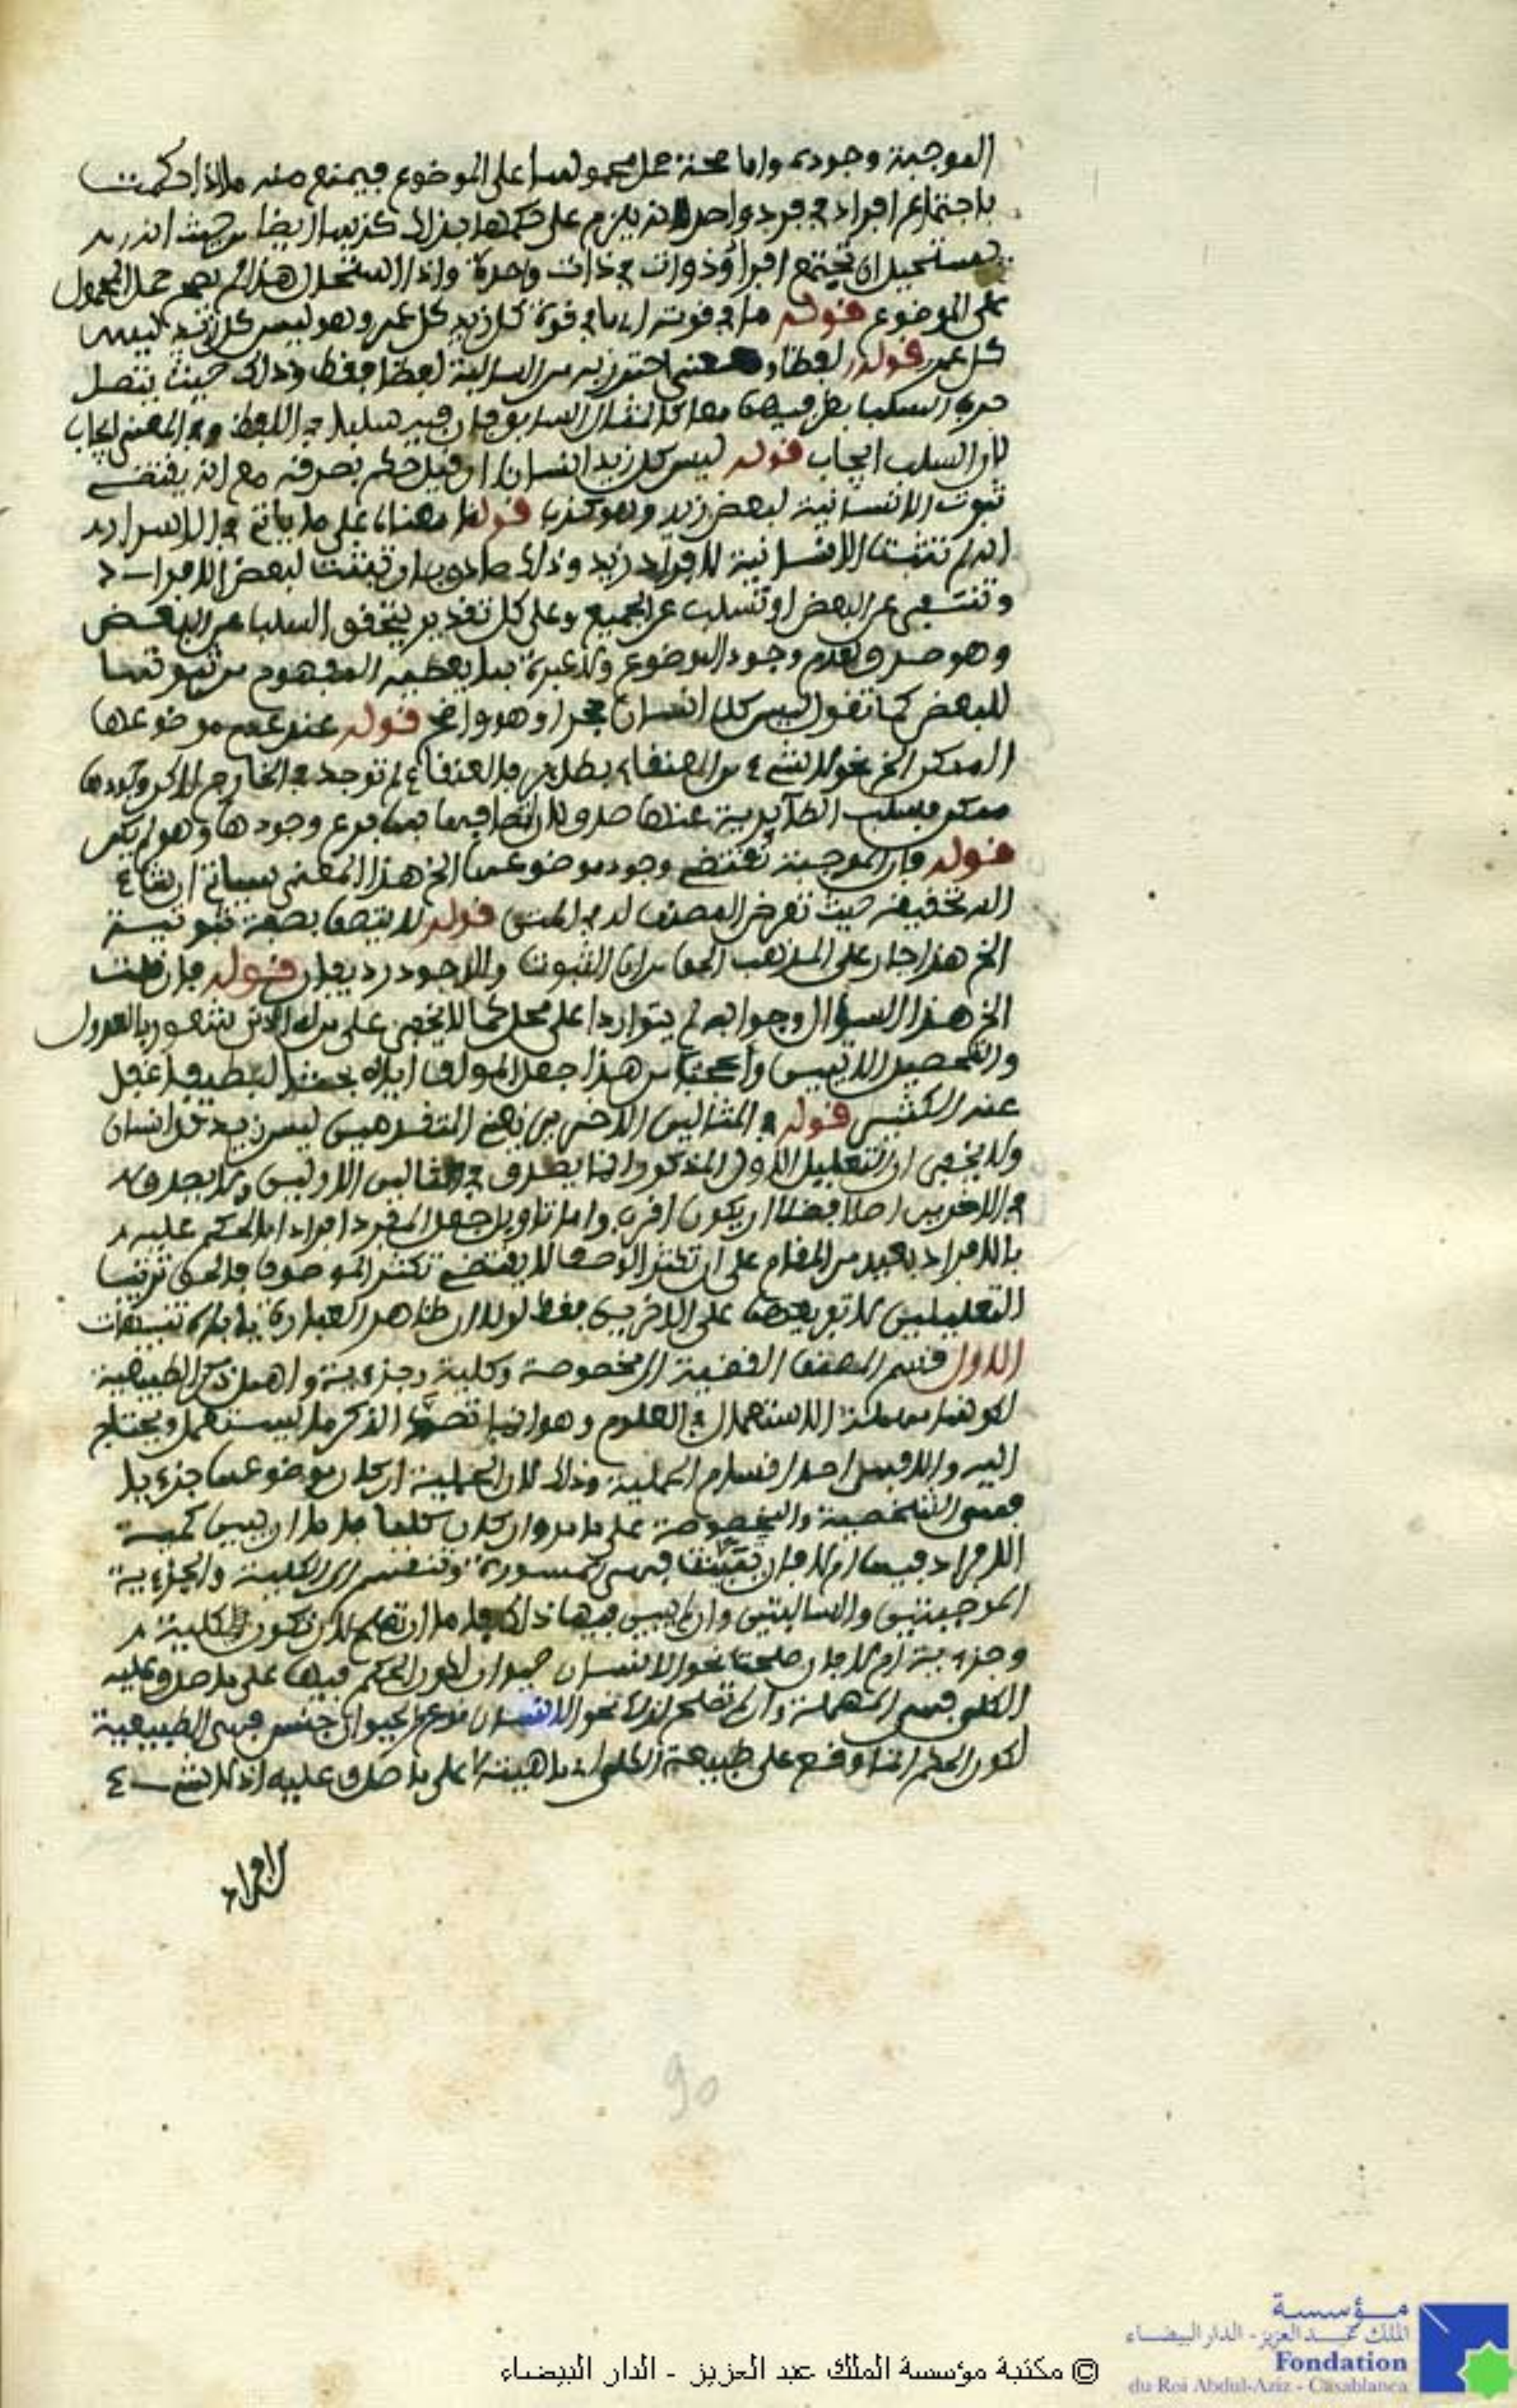 الموجبة وجوده واما صحة حمل محمولها على الموضوع فيمتنع منه ما اذا حكمت
باجتماع افراد في فرد واحد لانه يلزم على حكمها بذلك كذبها ايضا من حيث انه
يستحيل ان تجتمع افراد وذوات في ذات واحدة واذا استحال هذا لم يصح حمل المحمول
على الموضوع قوله ما في قوته اي ما في قوة كل زيد كل عمرو وهو ليس كل زيد ليس
كل عمرو قوله لفظا ومعنى احترز به من السالبة لفظا فقط وذلك حيث يتصل
حرف السلب بطرفيها معا كالمثال السابق فان فيه سلبا في اللفظ وفي المعنى ايجاب
لان السلب ايجاب قوله ليس كل زيد انسان ان قيل حكم بصدقه مع انه يقتضي
ثبوت الانسانية لبعض زيد وهو كذب قولنا معناه على ما ياتي في الاسوار
انه لم تثبت الانسانية لافراد زيد وذلك صادق بان تثبت لبعض الافراد
وتنتفي عن البعض او تسلب عن الجميع وعلى كل تقدير يتحقق السلب عن البعض
وهو صدق لعدم وجود الموضوع ولا عبرة بما يعطيه المفهوم من ثبوتها
للبعض كما تقول ليس كل انسان حجرا وهو واضح قوله عند عدم موضوعها
الممكن الخ نحو لا شيء من العنقاء بطائر فالعنقاء لم توجد في الخارج لاكن وجودها
ممكن فسلب الطائرية عنها صدق لان اتصافها بها فرع وجودها وهو لم يكن
قوله فان الموجبة تقتضي وجود موضوعها الخ هذا المعنى سياتي ان شاء
الله تحقيقه حيث تعرض المصنف له في المتن قوله لا يتصف بصفة ثبوتية
الخ هذا جار على المذهب الحق من ان الثبوت والوجود رديفان قوله فان قلت
الخ هذا السؤال وجوابه لم يتواردا على محل كما لا يخفى على من له ادنى شعور بالعدول
والتحصيل الاتيين واعجب من هذا جعل المؤلف اياه بحثا لطيفا غفل
عنه الكثير قوله في المثالين الاخيرين نحو المتقدمين ليس زيد كل انسان
ولا يخفى ان التعليل الاول المذكور انما يصدق في المثالين الاولين ولا يصدق
في الاخيرين اصلا فضلا ان يكون اقرب واما تاويل جعل المفرد افرادا بالحكم عليه
بالافراد بعيد من المقام على ان تكثر الوصف لا يقتضي تكثر الموصوف فالحق ترتيب
التعليلين لا توزيعهما على الاخرين فقط لولا ان ظاهر العبارة ياباه تنبيهات
الاول قسم المصنف القضية الى مخصوصة وكلية وجزءية واهمل ذكر الطبيعية
لكونها مهملة الاستعمال في العلوم وهو انما قصد الذكر ما يستعمل ويحتاج
اليه والا فهي احد اقسام الحملية وذلك لان الحملية ان كان موضوعها جزءيا
فهي الشخصية والمخصوصة على ما مر وان كان كليا فاما ان يبين كمية
الافراد فيها ام لا فان بينت فهي المسورة وتنقسم الى الكلية والجزءية
الموجبتين والسالبتين وان لم يبين فيها ذلك فاما ان تصلح لان تكون كلية
وجزءية ام لا فان صلحت نحو الانسان حيوان لكون الحكم فيها على ما صدق عليه
الكلي فهي المهملة وان لم تصلح لذلك نحو الانسان نوع والحيوان جنس فهي الطبيعية
لكون الحكم انما وقع على طبيعة الكلي اي ماهيته لا على ما صدق عليه اذ لا شيء
90
© مكتبة مؤسسة الملك عبد العزيز - الدار البيضاء
مؤسسة
الملك عبد العزيز - الدار البيضاء
Fondation
du Roi Abdul-Aziz - Casablanca